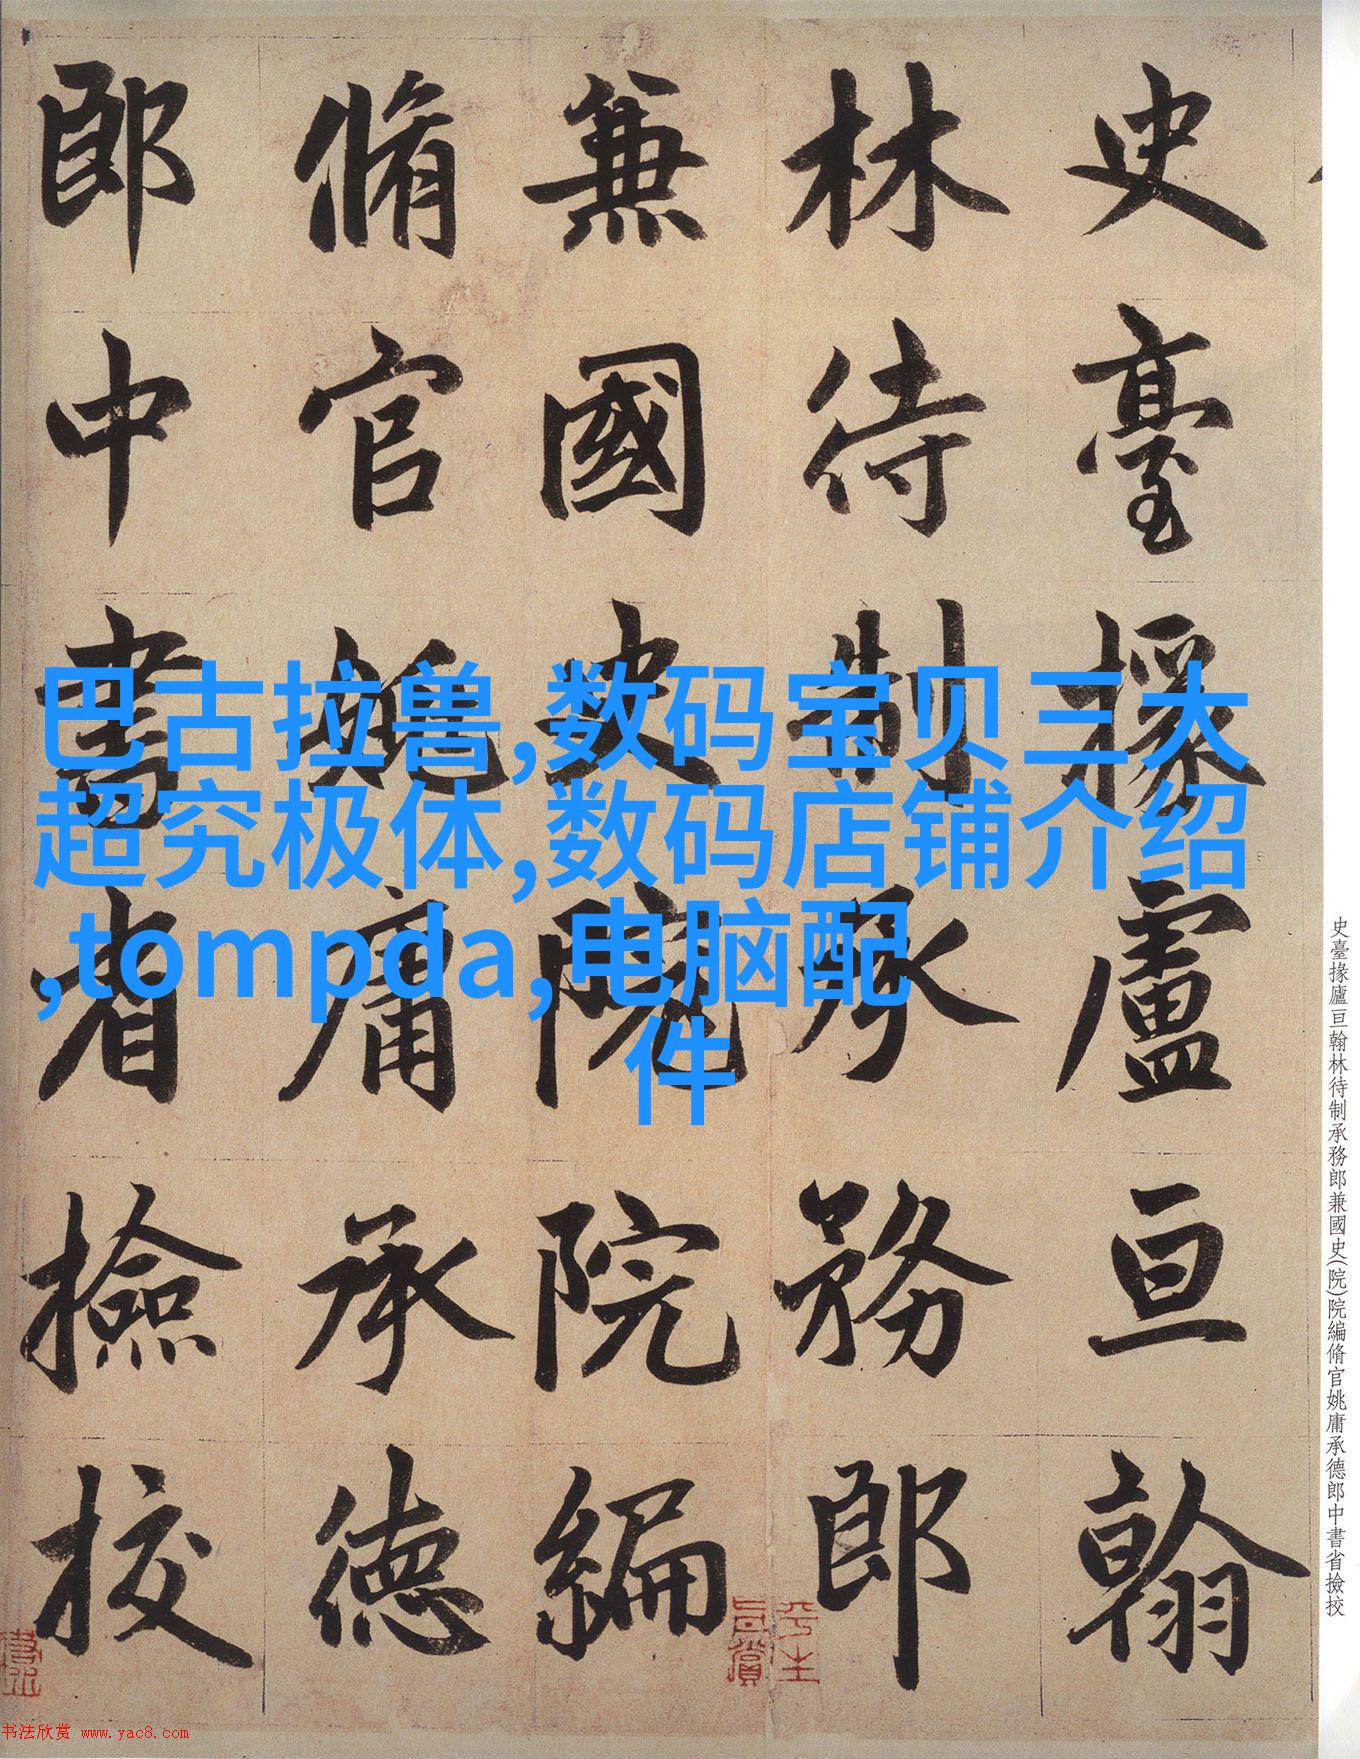 史臺掾廬亘翰
林待制承務郎
兼國史院院編
脩官姚庸承德
郎中書省撿挍
巴古拉兽,数码宝贝三大
超究极体,数码店铺介绍
,tompda,电脑配
件
史臺掾廬亘翰林待制承務郎兼國史(院)院編脩官姚庸承德郎中書省撿挍
平生
书法欣赏 www.yac8.com